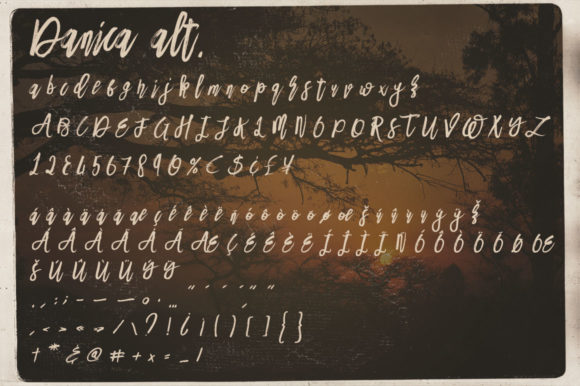 Danica alt.
abcdefghijklmnopqrstuvwxyz
ABCDEFGHIJKLMNOPQRSTUVWXYZ
1234567890%€$¢£¥
áâàäåãæçéêèëñóôòöõøœšúûùüýÿž
ÁÂÀÄÅÃÆÇÉÊÈËÍÎÌÏÑÓÔÒÖÕØŒ
ŠÚÛÙÜÝŸ
.,:;-–—_°·…
‚<>«»/\?!¿¡()[]{}
†*&@#+x=_|